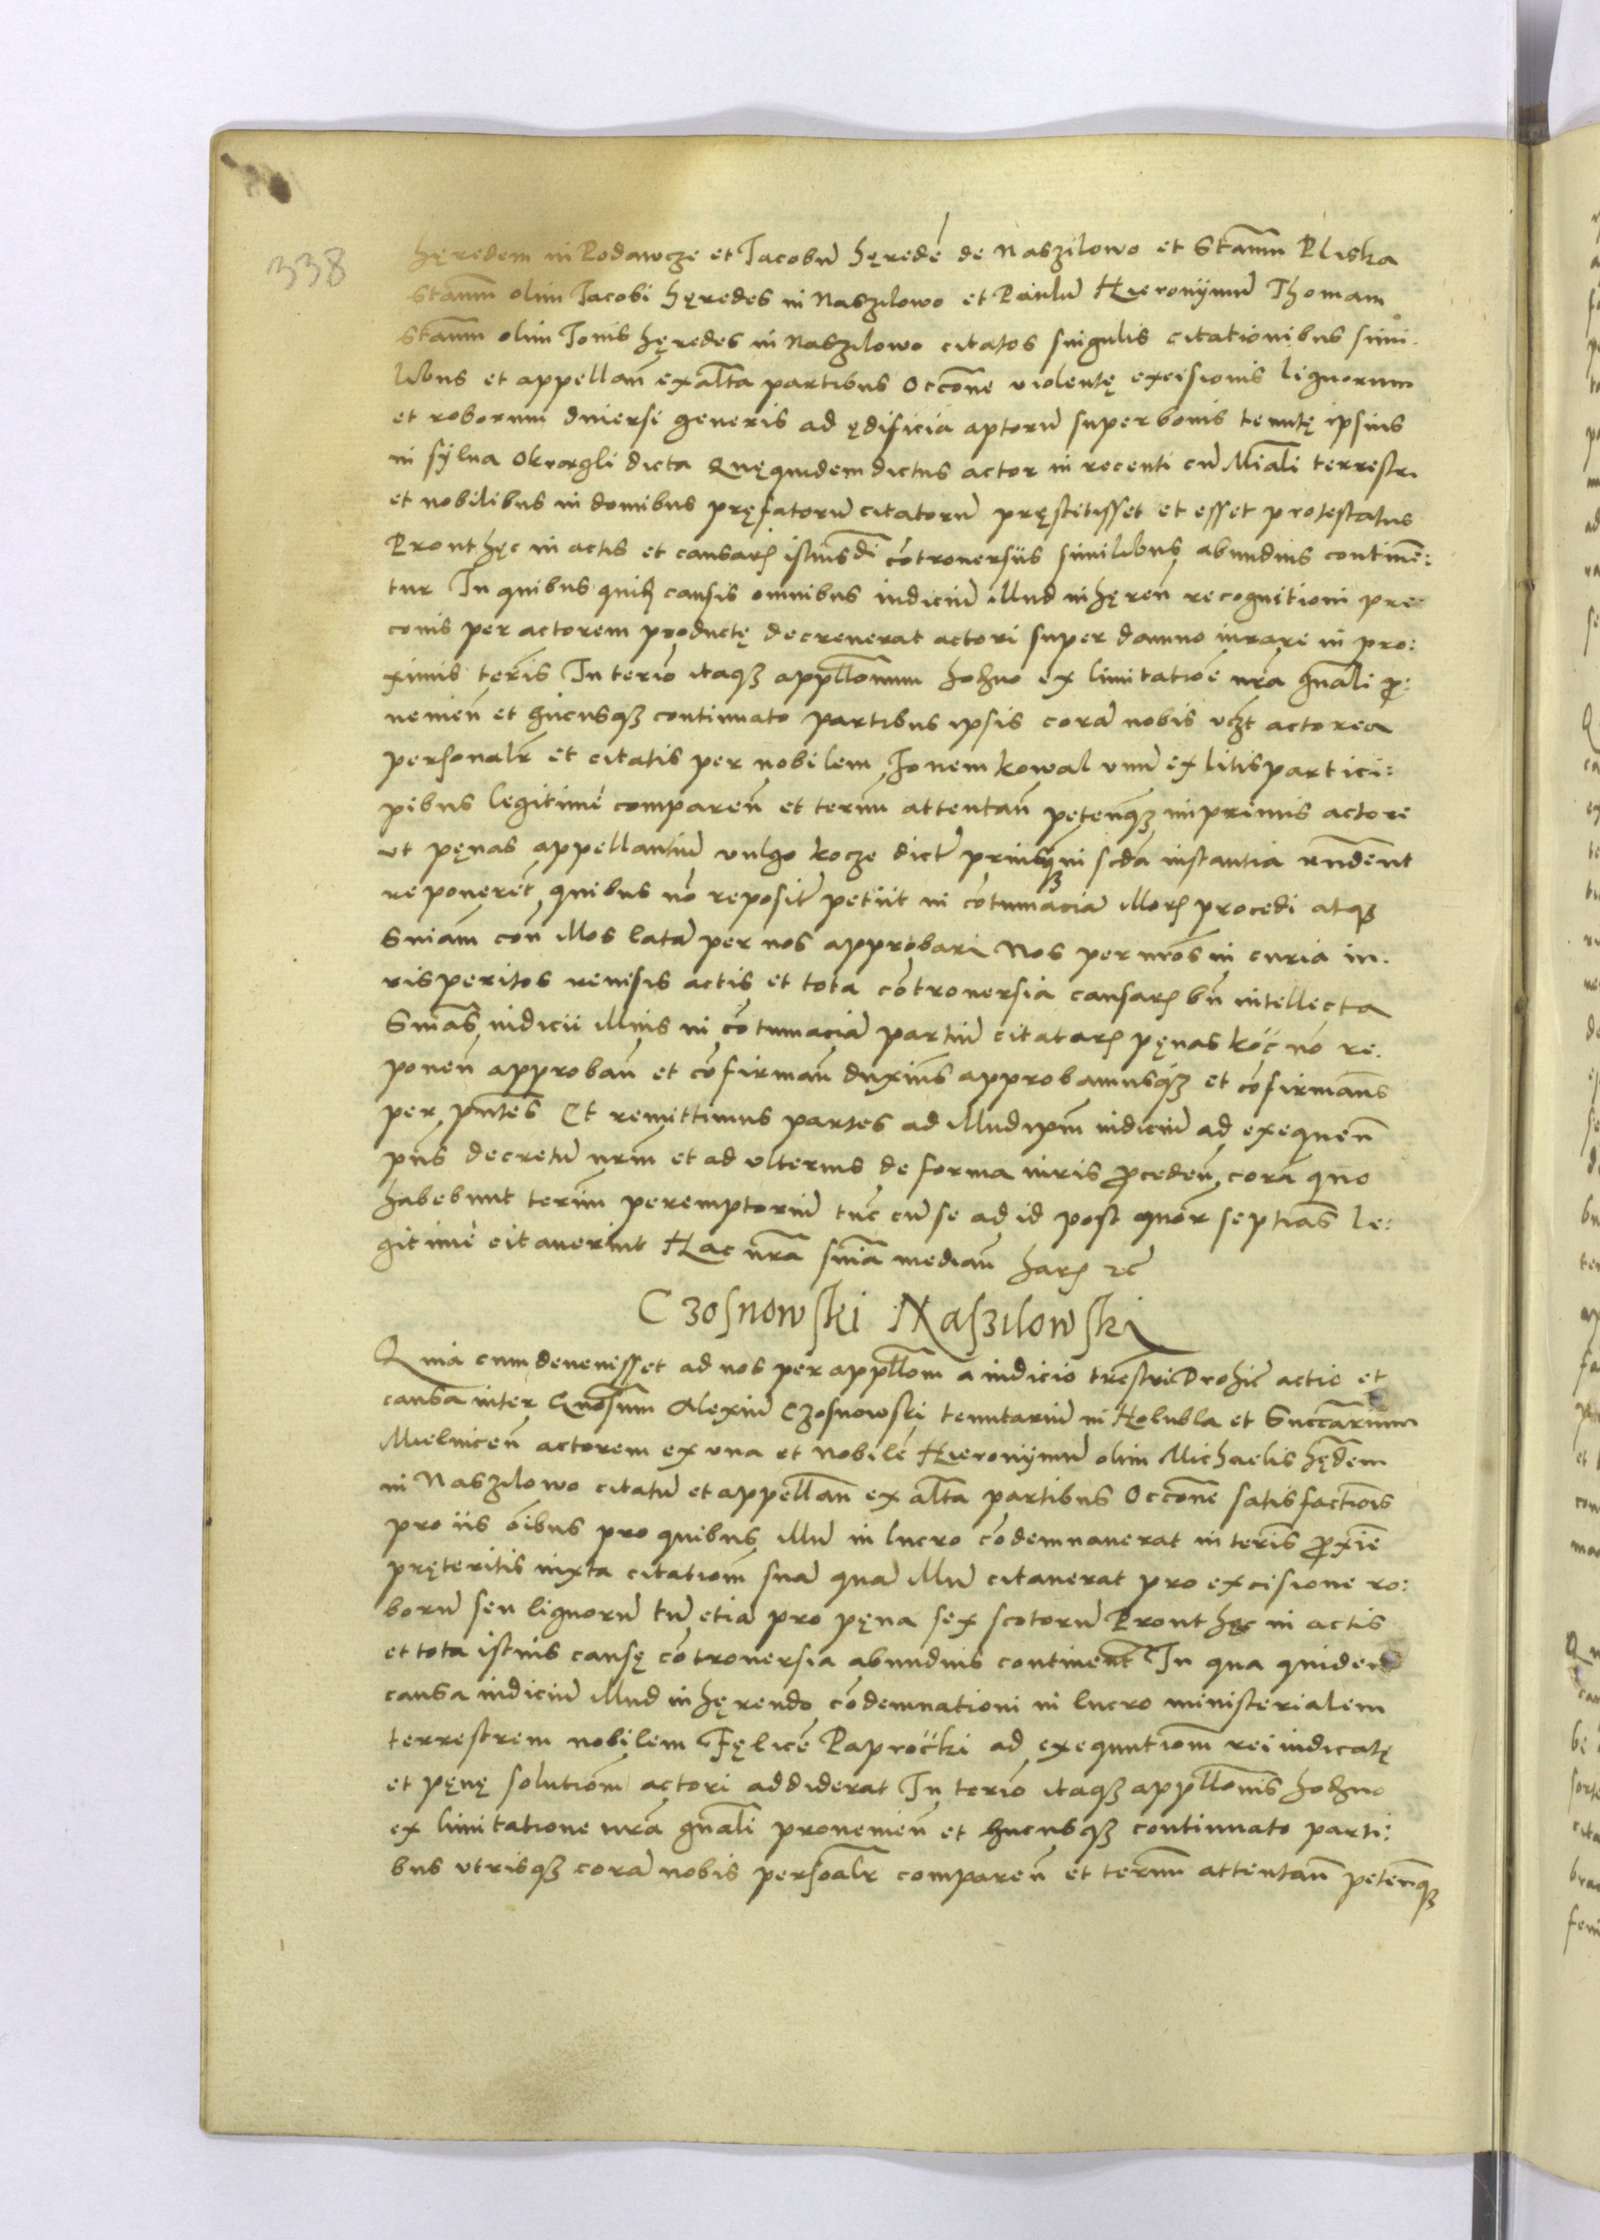 338
hęredem in Rodawcze et Jacobū hęredē de Naszilowo et Stanm Pliska
Stanm olim Jacobi hęredes in Naszilowo et Paulū Hieronijmū Thomam
Stanm olim Jonis hęredes in Naszilowo citatos singulis citationibus simi.
libus et appellan̄ ex alta partibus Occone violentę excisionis lignorum
et roborum diuersi generis ad ędificia aptorū super bonis tenutę ipsius
in sylua Okragli dicta Quęquidem dictus actor in recenti cū Miali terrestri
et nobilibus in domibus pręfatorū citatorū pręstitisset et esset protestatus
Prout hęc in actis et causarꝫ istiusdi cōtrouersiis similibus abundius contine:
tur In quibus quidꝫ causis omnibus iudiciū illud inhęren̄ recognitioni pre
conis per actorem productę decreuerat actori super damno iurare in pro:
ximis teris In terio itaqꝫ appllonum hozno ex limitatioē nrā gnali ꝓ:
uenien̄ et hucusqꝫ continuato partibus ipsis corā nobis vzt actorea
personalr et citatis per nobilem Jonem kowal vnū ex litisparti ci:
pibus legitimè comparen̄ et termū attentan̄ petenqꝫ inprimis actore
vt pęnas appellantiū vulgo kocze dict priusqꝫ in scda instantia rndent
reponeret quibus nō reposit petiit in cōtumaciā illorꝫ procedi atqꝫ
Sniam con illos latā per nos approbari Nos per nros in curia iu.
risperitos reuisis actis et tota cōtrouersia causarꝫ bn̄ intellecta
Snias iudicii illius in cōtumaciā partiū citatarꝫ pęnas koc nō re.
ponen̄ approban̄ et cōfirman̄ duximus approbamusqꝫ et cōfirmans
per pntes Et remittimus partes ad illud ipm iudiciū ad exequen̄
pns decretū nrm et ad vlterius de forma iuris ꝓceden̄ corā quo
habebunt termū peremptoriū tūc cū se ad id post quor septias le:
gitimè citauerint Hac nrā snia median̄ harꝫ rc
Czosnowski Naszilowski
Quia cum deuenisset ad nos per appllom a iudicio trestri Drohic actio et
causa inter Gnosum Alexiū Czosnowski tenutariū in Holubla et Succarium
Mielnicen̄ actorem ex vna et Nobilē Hieronijmū olim Michaelis hędem
in Naszilowo citatū et appellan̄ ex alta partibus Occone satisfactiois
pro iis oībus pro quibus illū in lucro cōdemnauerat in teris ꝓxie
pręteritis iuxta citatiom suā quā illū citauerat pro excisione ro:
borū seu lignorū tū etiā pro pęna sex scotorū Prout hęc in actis
et tota istius causę cōtrouersia abundius continent In qua quidem
causa iudiciū illud inhęrendo cōdemnationi in lucro ministerialem
terrestrem nobilem Fęlicē Paprocki ad exequutiom rei iudicatę
et pęnę solutiom actori addiderat In terio itaqꝫ appllonis hozno
ex limitatione nrā gnali prouenien̄ et hucusqꝫ continuato parti:
bus vtrisqꝫ corā nobis persoalr comparen̄ et termū attentan̄ petenqꝫ